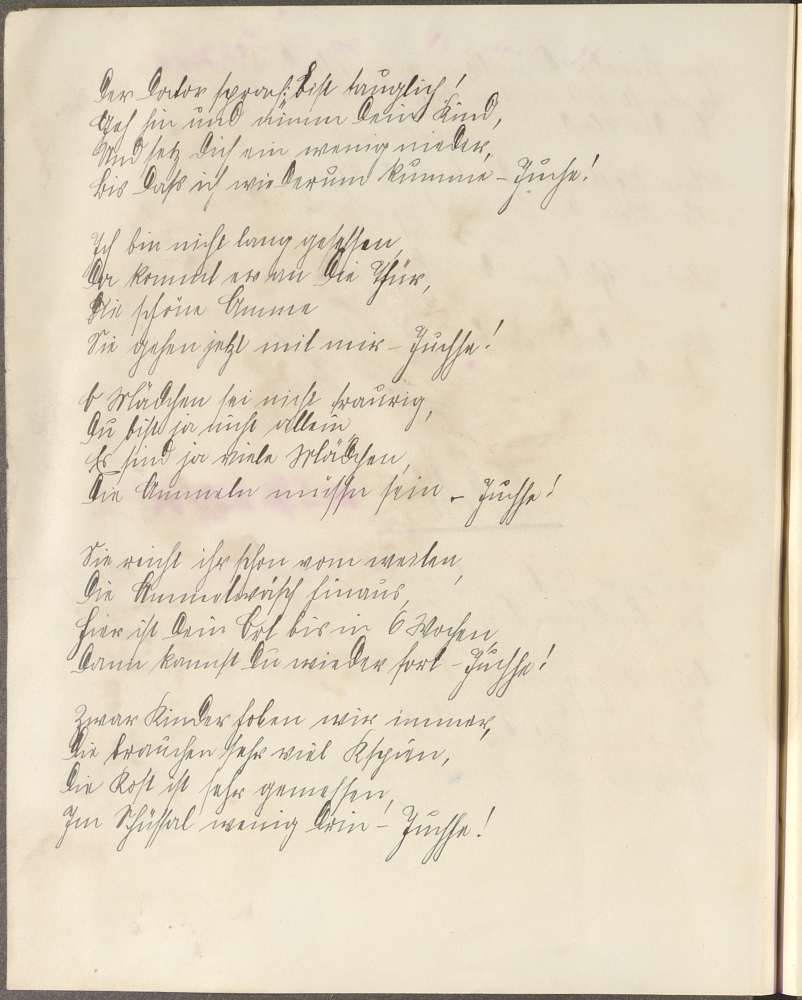 Der Doctor sprach: Bist tauglich!
Geh hin und nimm Dein Kind,
Und setz Dich ein wenig nieder,
Bis Dass ich wiederum kumme – Juche!
Ich bin nicht lang gesessen,
Da kommt er an Die Thür,
Die schöne Amme
Sie gehen jetzt mit mir – Juchhe!
O Mädchen sei nicht traurig,
Du bist ja nicht allein
Es sind ja viele Mädchen,
Die Ammeln müssn sein – Juchhe!
Sie reicht ihr schon vom weiten,
Die Ammelwäsch hinaus,
Hier ist Dein Bet bis in 6 Wochen,
Dann kannst Du wieder fort – Juchhe!
Zwar Kinder haben wir immer,
Die brauchen sehr viel
Die Kost ist sehr gemessen,
Im Schüssal wenig Drin – Juchhe!